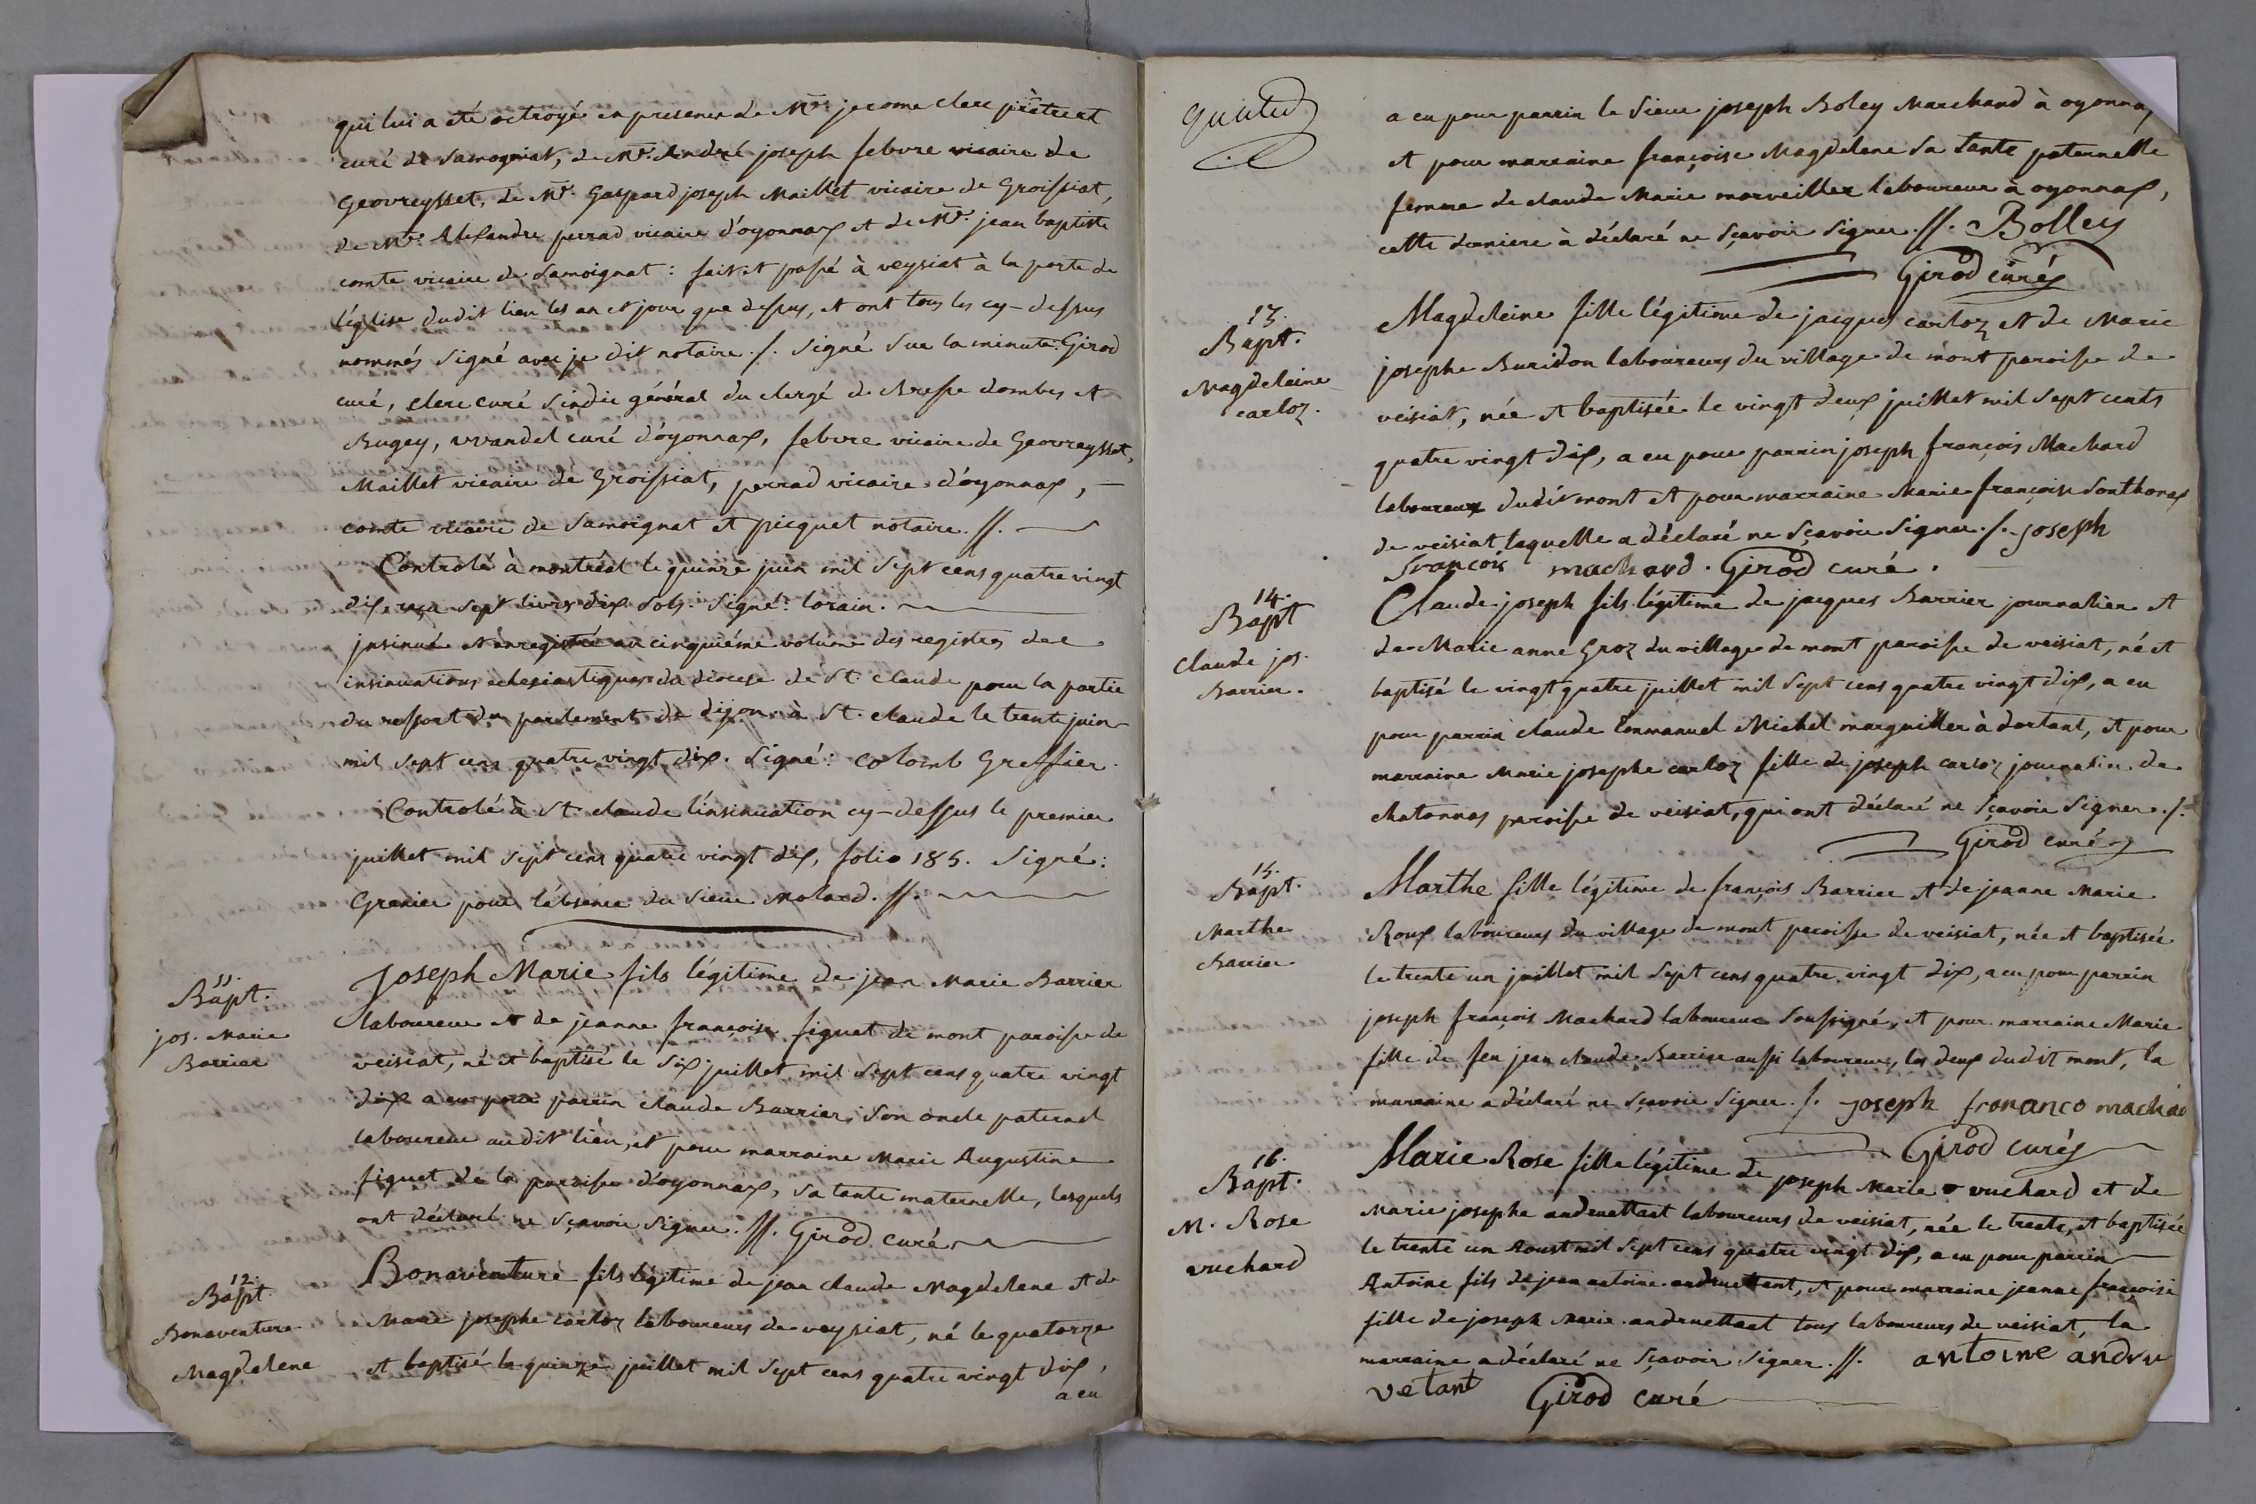 qui lui a été octroyé en presence de Mre. jerome clerc prêtre et
curé de Samogniat, de Mre. André joseph febvre vicaire de
Geovreysset, de Mre. Gaspard joseph Maillet vicaire de Groissiat,
de Mre. Alexandre perrad vicaire d'oyonnax et de Mre. jean baptiste
comte vicaire de Samoignat : fait et passé à veysiat à la porte de
l'église dudit lieu les an et jour que dessus, et ont tous les cy-dessus
nommés signé avec je dit notaire ./. signé sur la minute: Girod
curé, clerc curé sindic général du clergé de Bresse dombes et
Bugey, vvandel curé d'oyonnax, febvre vicaire de Geovreysset,
Maillet vicaire de Groissiat, perrad vicaire d'oyonnax,
comte vicaire de Samoignat et picquet notaire .//.
Controlé à montréal le quinze juin mil sept cens quatre vingt
dix reçu sept livres dix sols. signé: lorain.
insinué et enregistré au cinquiéme volume des registres des
insinuations eclesiastiques du diocese de St. claude pour la partie
du ressort du parlement de dijon. à St. claude le trente juin
mil sept cens quatre vingt dix. signé: colomb Greffier.
Controlé à St. claude l'insinuation cy-dessus le premier
juillet mil sept cens quatre vingt dix, folio 185. signé:
Grenier pour l'absence du sieur molard .//.
11.
Bapt.
jos. Marie
Barrier
Joseph Marie fils légitime de jean Marie Barrier
laboureur et de jeanne françoise figuet de mont paroisse de
veisiat, né et baptisé le six juillet mil sept cens quatre vingt
dix a eu pour parrin claude Barrier, son oncle paternel
laboureur audit lieu, et pour marraine Marie Augustine
figuet de la paroisse d'oyonnax, sa tante maternelle, lesquels
ont déclaré ne sçavoir signer .//. Girod curé
12.
Bapt.
Bonaventure
Magdelene
Bonaventure fils légitime de jean claude Magdelene et de
Marie josephe carloz laboureurs de veysiat, né le quatorze
et baptisé le quinze juillet mil sept cens quatre vingt dix,
a eu
a eu pour parrin le sieur joseph Boley Marchand à oyonnax
et pour marraine françoise Magdelene sa tante paternelle
femme de claude Marie morveillex laboureur à oyonnax,
cette derniere à déclaré ne sçavoir signer .//. Bolley
Girod curé
13.
Bapt.
Magdelaine
carloz.
Magdeleine fille légitime de jacques carloz et de Marie
josephe Buridon laboureurs du village de mont paroisse de
veisiat, née et baptisée le vingt deux juillet mil sept cents
quatre vingt dix, a eu pour parrin joseph françois Machard
laboureux dudit mont et pour marraine Marie françoise Sonthonax
de veisiat, laquelle a déclaré ne sçavoir signer ./. joseph
francois machard. Girod curé.
14.
Bapt
claude jos.
Barrier.
Claude joseph fils légitime de jacques Barrier journalier et
de Marie anne Groz du village de mont paroisse de veisiat, né et
baptisé le vingt quatre juillet mil sept cens quatre vingt dix, a eu
pour parrin claude Emmanuel Michel marguillier à dortant, et pour
marraine Marie josephe carloz fille de joseph carloz journalier de
chatonnas paroisse de veisiat, qui ont déclaré ne sçavoir signer ./.
Girod curé
15.
Bapt.
Marthe
Barrier
Marthe fille légitime de françois Barrier et de jeanne Marie
Roux laboureurs du village de mont paroisse de veisiat, née et baptisée
le trente un juillet mil sept cens quatre vingt dix, a eu pour parrin
joseph françois Machard laboureur soussigné, et pour marraine Marie
fille de feu jean claude Barrier aussi laboureurs, les deux dudit mont, la
marraine a déclaré ne sçavoir signer ./. joseph frananco machad
Girod curé
16.
Bapt.
M. Rose
vuchard
Marie Rose fille légitime de joseph Marie vuchard et de
Marie josephe andruettant laboureurs de veisiat, née le trente, et baptisée
le trente un Aoust mil sept cens quatre vingt dix, a eu pour parrin
Antoine fils de jean antoine andruettant, et pour marraine jeanne françoise
fille de joseph Marie andruettant tous laboureurs de veisiat, la
marraine a déclaré ne sçavoir signer .//. antoine andru
vetant Girod curé